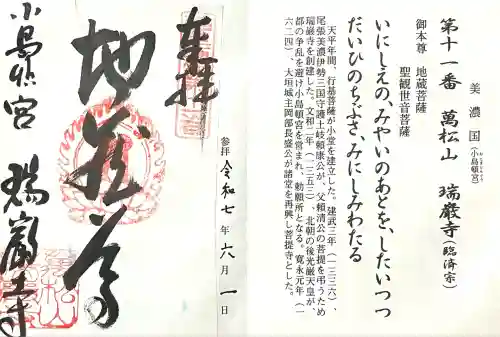 美濃国(小島頓宮)
第十一番 萬松山 瑞巌寺(臨済宗)
御本尊 地蔵菩薩
聖観世音菩薩
いにしえの、みやいのあとを、したいつつ
だいひのちぶさ、みにしみわたる
天平年間、行基菩薩が小堂を建立した。建武三年(一三三六)、
尾張美濃伊勢三国守護土岐頼康公が、父頼清公の菩提を弔うため
瑞巌寺を創建した。文和二年(一三五三)、北朝の後光厳天皇が、
都の争乱を避け小島頓宮を営まれ、勅願所となる。寛永元年(一
六二四)、大垣城主岡部長盛公が諸堂を再興し菩提寺とした。
参拝 令和七年六月一日
奉拝
地蔵尊
小島頓宮 瑞巌寺